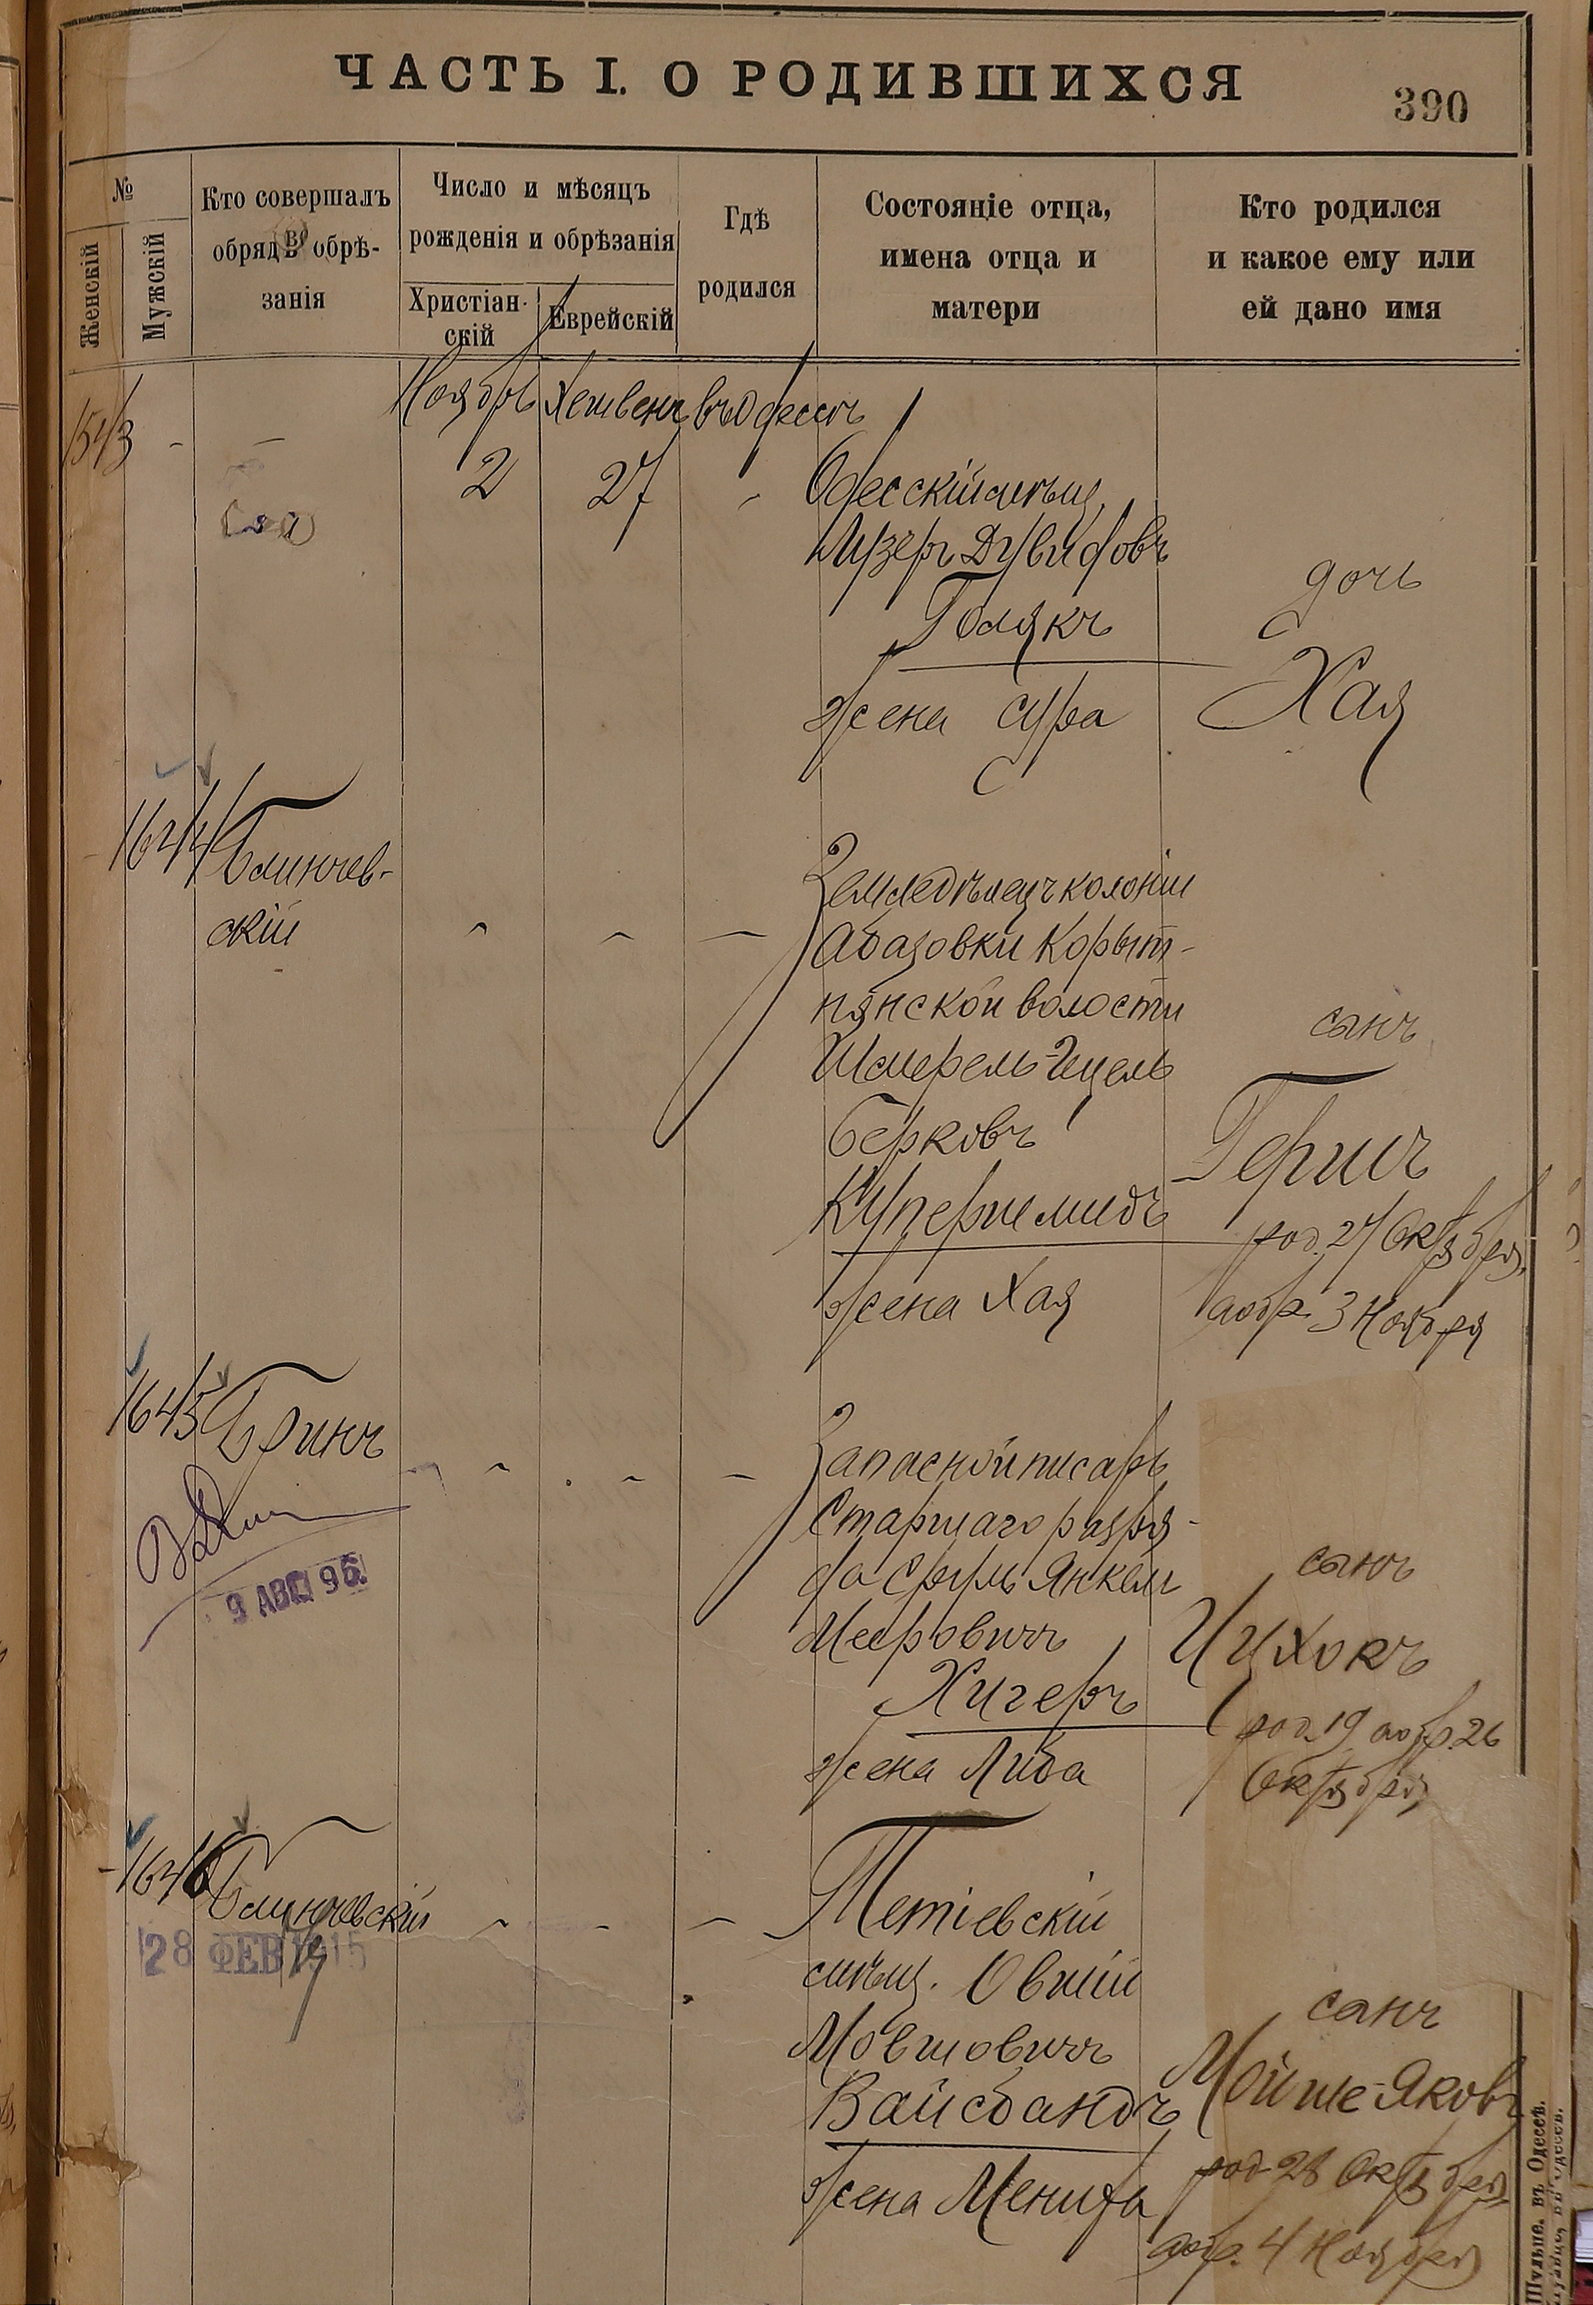 ЧАСТЬ I. О РОДИВШИХСЯ
390
№
Женскій
Мужскій
Кто совершалъ
обрядъ обрѣ-
занія
Число и мѣсяцъ
рожденія и обрѣзанія
Христіан-
скій
Еврейскій
Гдѣ
родился
Состояніе отца,
имена отца и
матери
Кто родился
и какое ему или
ей дано имя
1543
-
-
Ноябрь
Хешвенъ
въ Одессѣ
2
27
Одесскій мѣщ.
Лузеръ Дувидовъ
Голякъ
жена Сура
дочь
Хая
1644
Блинчев-
скій
Земледѣлецъ колоніи
Абазовки Корыт-
нянской волости
Шмерель-Ицель
Берковъ
Купершмидъ
жена Хая
сынъ
Гершъ
род. 27 Октября,
аобр. 3 Ноября
1645
Бринъ
9 АВГ 95
Запасной писарь
Старшаго разря-
да Сруль Янкель
Мееровичъ
Хигеръ
жена Либа
сынъ
Ицхокъ
род. 19 аобр. 26
Октября
1646
Блинчевскій
28 ФЕВ 1915
Тетіевскій
мѣщ. Овшій
Мовшовичъ
Вайсбандъ
жена Менифа
сынъ
Мойше-Яковъ
род 28 Октября
аобр. 4 Ноября
Шульце. въ Одессѣ.